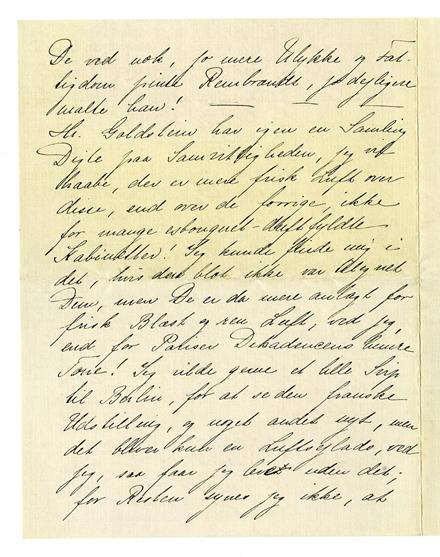 De ved nok, jo mere Ulykke og Fat-
tigdom pinte Rembrandt, jo dejligere
malte han! — — — —
Hr. Goldstein har igen en Samling
Digte paa Samvittigheden, jeg vil
haabe, der er mere frisk Luft over
disse, end over de forrige, ikke
for mange esbouquet-duftfyldte
Kabinetter! Jeg kunde finde mig i
det, hvis det blot ikke var tilegnet
Dem, men De er da mere anlagt for
frisk Blæst og ren Luft, ved jeg,
end for Pariser Dekadencens
Tone! Jeg vilde gerne et lille Trip
til Berlin, for at se den franske
Udstilling, og noget andet nyt, men
det bliver kun en Luftseglads, ved
jeg, saa faar jeg leve uden det;
for Resten synes jeg ikke, at